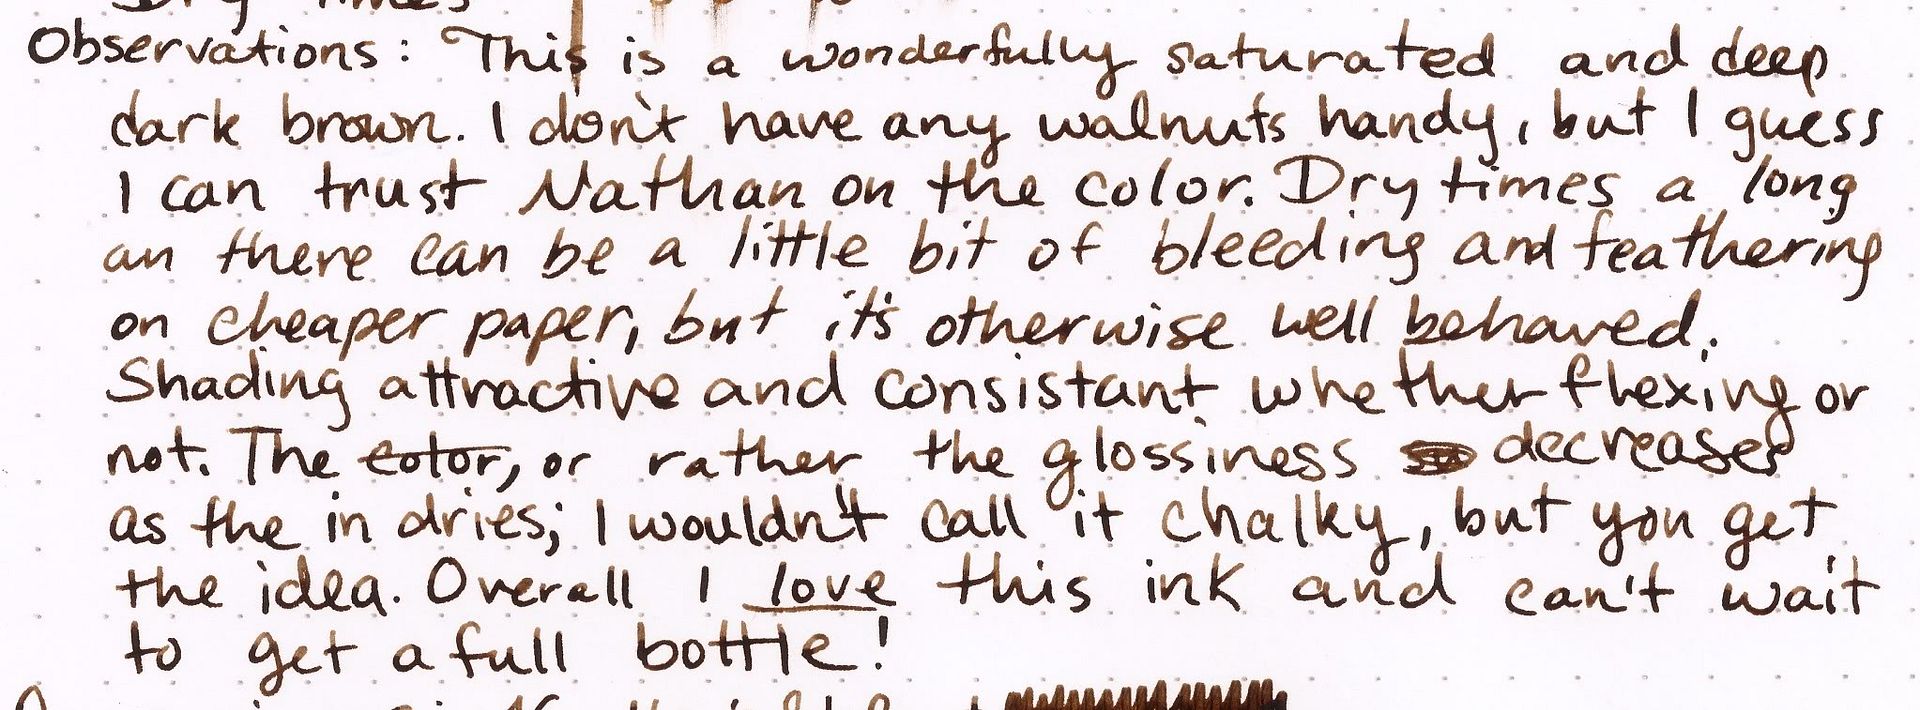 Dry times
Observations: This is a wonderfully saturated and deep
dark brown. I don't have any walnuts handy, but I guess
I can trust Nathan on the color. Dry times a long
an there can be a little bit of bleeding and feathering
on cheaper paper, but it's otherwise well behaved.
Shading attractive and consistant whether flexing or
not. The color, or rather the glossiness decreases
as the in dries; I wouldn't call it chalky, but you get
the idea. Overall I love this ink and can't wait
to get a full bottle!